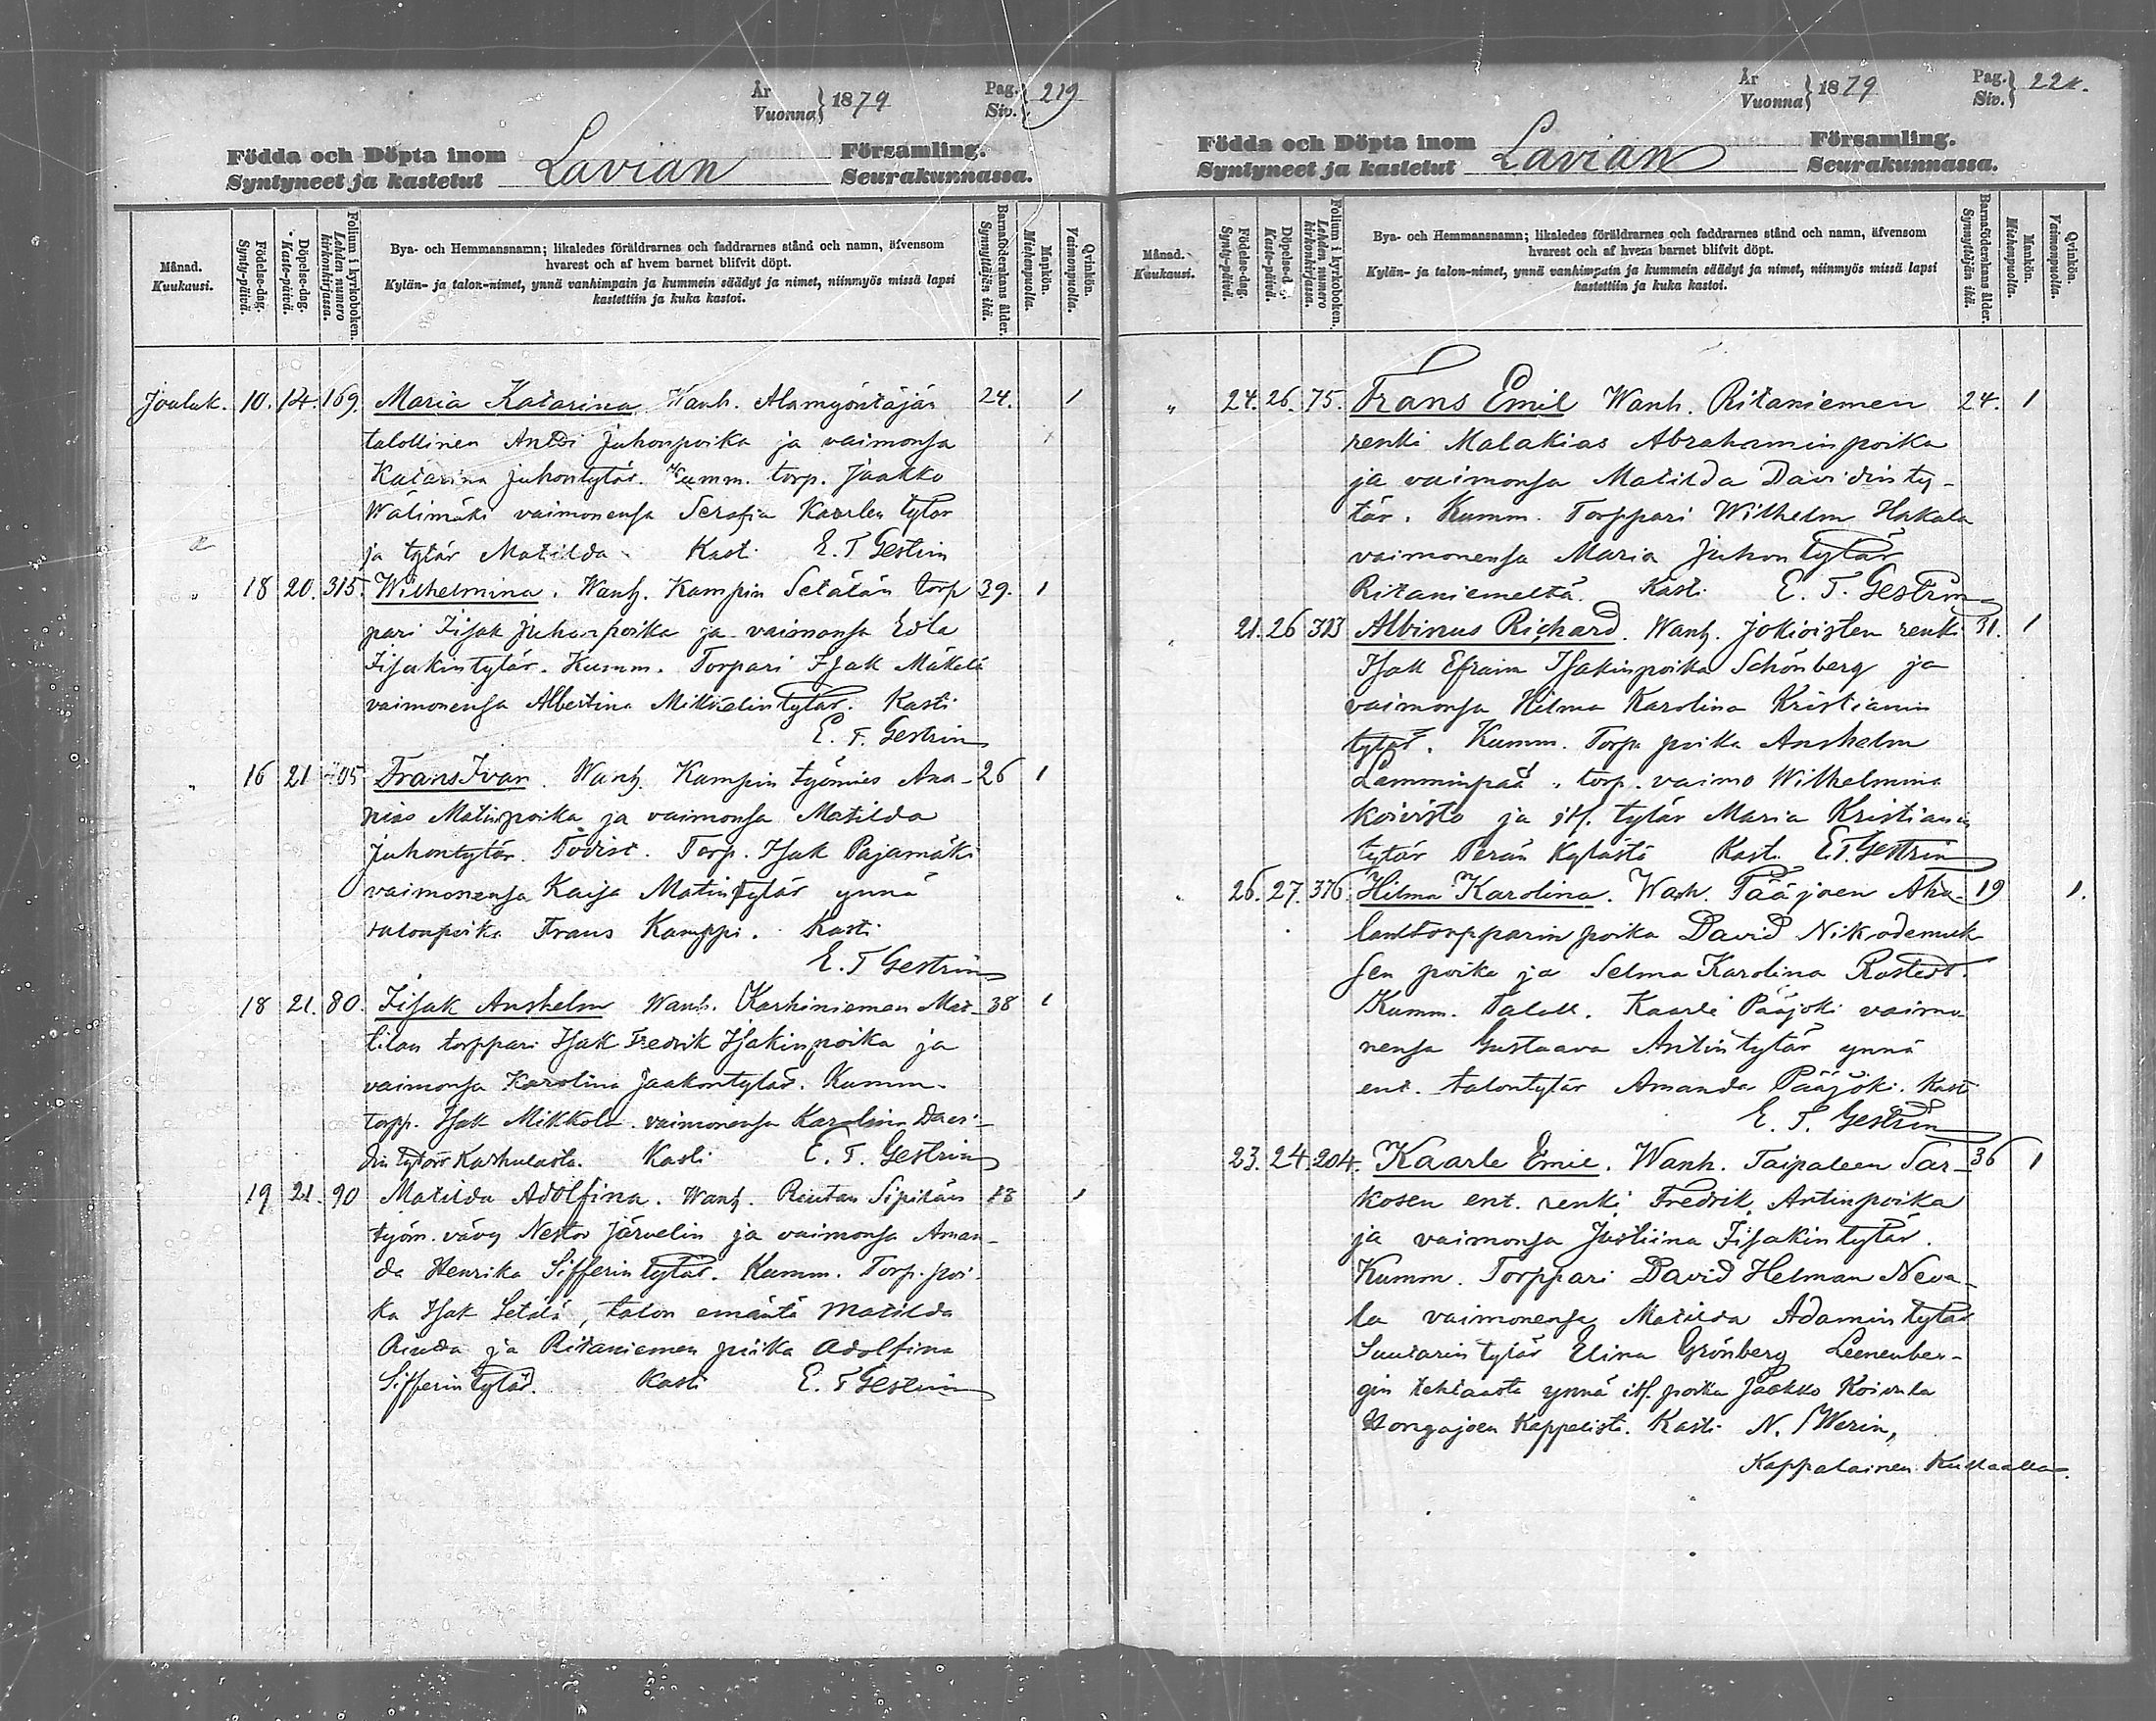 År
Vuonna } 1879
Pag.
Siv. } 219
Födda och Döpta inom
Syntyneet ja kastetut Lavian Församling.
Seurakunnassa.
Månad.
Kuukausi.
Födelse-dag.
Synty-päivä.
Döpelse-dag.
Kaste-päivä.
Folium i kyrkoboken.
Lehden numero
kirkonkirjassa.
Bya- och Hemmansnamn; likaledes föräldrarnes och faddrarnes stånd och namn, äfvensom
hvarest och af hvem barnet blifvit döpt.
Kylän- ja talon-nimet, ynnä vanhimpain ja kummein säädyt ja nimet, niinmyös missä lapsi
kastettiin ja kuka kastoi.
Barnaföderskans ålder.
Synnyttäjän ikä.
Mankön.
Miehenpuolia.
Qvinkön.
Vaimonpuolia.
Jouluk. 10. 14. 169. Maria Katarina Wanh. Alamyöntäjän 24. 1
talollinen Antti Juhonpoika ja vaimonsa
Katarina Juhontytär. Kumm. torp. Jaakko
Wälimäki vaimonensa Serafia Kaarlen tytär
ja tytär Matilda Kasti E. T Gestrin
" 18 20. 315. Wilhelmina. Wanh. Kampin Setälän torp 39. 1
pari Iisak Juhonpoika ja vaimonsa Edla
Iisakintytär. Kumm. Torpari Isak Mäkelä
vaimonensa Albertina Mikkelintytär. Kasti
E. T. Gestrin
" 16 21 405 Frans Ivar. Wanh. Kampin työmies Ana- 26 1
nias Matinpoika ja vaimonsa Matilda
Juhontytär. Todist. Torp. Isak Pajamäki
vaimonensa Kaisa Matintytär ynnä
talonpoika Frans Kamppi. Kasti
E. T Gestrin
18 21. 80. Iisak Anshelm Wanh. Karhiniemen Mat- 38 1
tilan torppari Isak Fredrik Isakinpoika ja
vaimonsa Karolina Jaakontytär. Kumm.
torpp. Isak Mikkola vaimonensa Karolina Davi-
din tytär Karhulasta. Kasti E. T. Gestrin
19 21. 90 Matilda Adolfina. Wanh. Riutan Sipilän 1
työm. vävy Nestor Järvelin ja vaimonsa Aman-
da Henrika Sifferintytär. Kumm. Torp. poi-
ka Isak Setälä, talon emäntä Matilda
Riutta ja Ritaniemen piika Adolfina
Sifferintytär. Kasti E. T Gestrin
År
Vuonna } 1879
Pag.
Siv. } 221.
Födda och Döpta inom
Syntyneet ja kastetut Lavian Församling.
Seurakunnassa.
Månad.
Kuukausi.
Födelse-dag.
Synty-päivä.
Döpelse-dag.
Kaste-päivä.
Folium i kyrkoboken.
Lehden numero
kirkonkirjassa.
Bya- och Hemmansnamn; likaledes föräldrarnes och faddrarnes stånd och namn, äfvensom
hvarest och af hvem barnet blifvit döpt.
Kylän- ja talon-nimet, ynnä vanhimpain ja kummein säädyt ja nimet, niinmyös missä lapsi
kastettiin ja kuka kastoi.
Barnaföderskans ålder.
Synnyttäjän ikä.
Mankön.
Miehenpuolia.
Qvinkön.
Vaimonpuolia.
" 24. 26. 75. Frans Emil Wanh. Ritaniemen 24. 1
renki Malakias Abrahaminpoika
ja vaimonsa Matilda Davidinty-
tär. Kumm. Torppari Wilhelm Hakala
vaimonensa Maria Juhontytär
Ritaniemeltä. Kasti E. T. Gestrin
21. 26 313 Albinus Richard. Wanh. Jokioisten renki 31. 1
Isak Efraim Isakinpoika Schönberg ja
vaimonsa Hilma Karolina Kristianin
tytär. Kumm. Torp. poika Anshelm
Lamminpää, torp. vaimo Wilhelmina
Koivisto ja itl. tytär Maria Kristianin
tytär Perän Kylästä Kasti E. T. Gestrin
" 26. 27. 376. Hilma Karolina. Wanh. Pääjoen Aha- 19 1.
lantorpparin poika David Nikodemuk
sen poika ja Selma Karolina Rostedt.
Kumm. Taloll. Kaarle Pääjoki vaimo
nensa Gustaava Antintytär ynnä
ent. talontytär Amanda Pääjoki. Kast
E. T. Gestrin
23. 24. 204. Kaarle Emil. Wanh. Taipaleen Sar- 36 1
kosen ent. renki Fredrik Antinpoika
ja vaimonsa Justiina Iisakintytär.
Kumm. Torppari David Helman Neva-
la vaimonensa Matilda Adamintytär
Suutarin tytär Elina Grönberg Leenenber-
gin tehtaasta ynnä itl. poika Jaakko Koivula
Hongajoen Kappelista. Kasti N. Werin,
Kappalainen